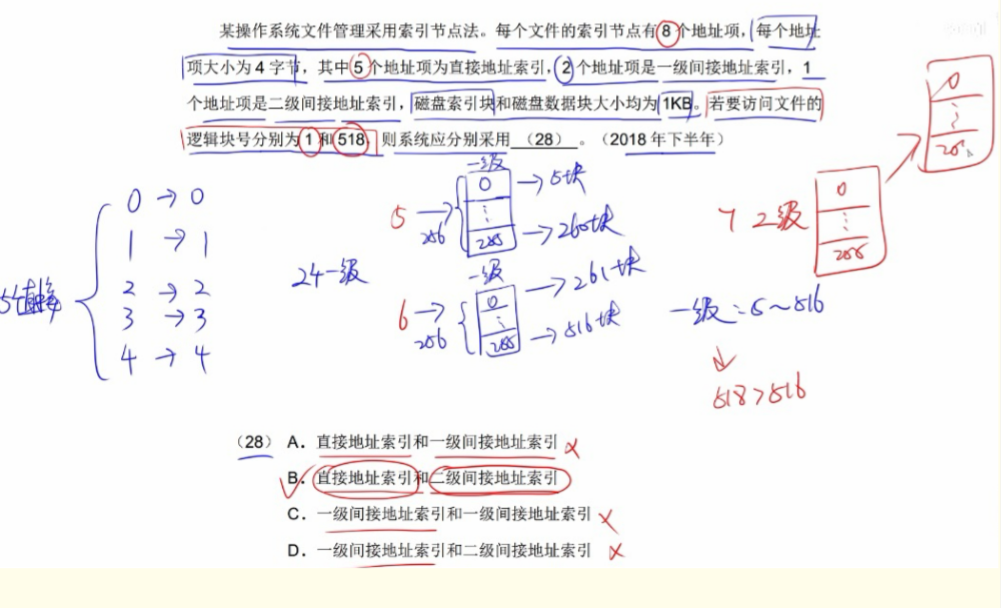 某操作系统文件管理采用索引节点法。每个文件的索引节点有8个地址项，每个地址
项大小为4字节，其中5个地址项为直接地址索引，2个地址项是一级间接地址索引，1
个地址项是二级间接地址索引，磁盘索引块和磁盘数据块大小均为1KB。若要访问文件的
逻辑块号分别为1和518，则系统应分别采用 （28） 。（2018年下半年）
0
⋮
0 → 0
1 → 1
2 → 2
3 → 3
4 → 4
一级
5 → 0 → 5块
256 ⋮
255 → 260块
24一级
一级
6 → 0 → 261块
256 ⋮
255 → 516块
7 二级
0
⋮
一级：5～516
↓
518>516
（28） A．直接地址索引和一级间接地址索引 ×
B．直接地址索引和二级间接地址索引
C．一级间接地址索引和一级间接地址索引 ×
D．一级间接地址索引和二级间接地址索引 ×